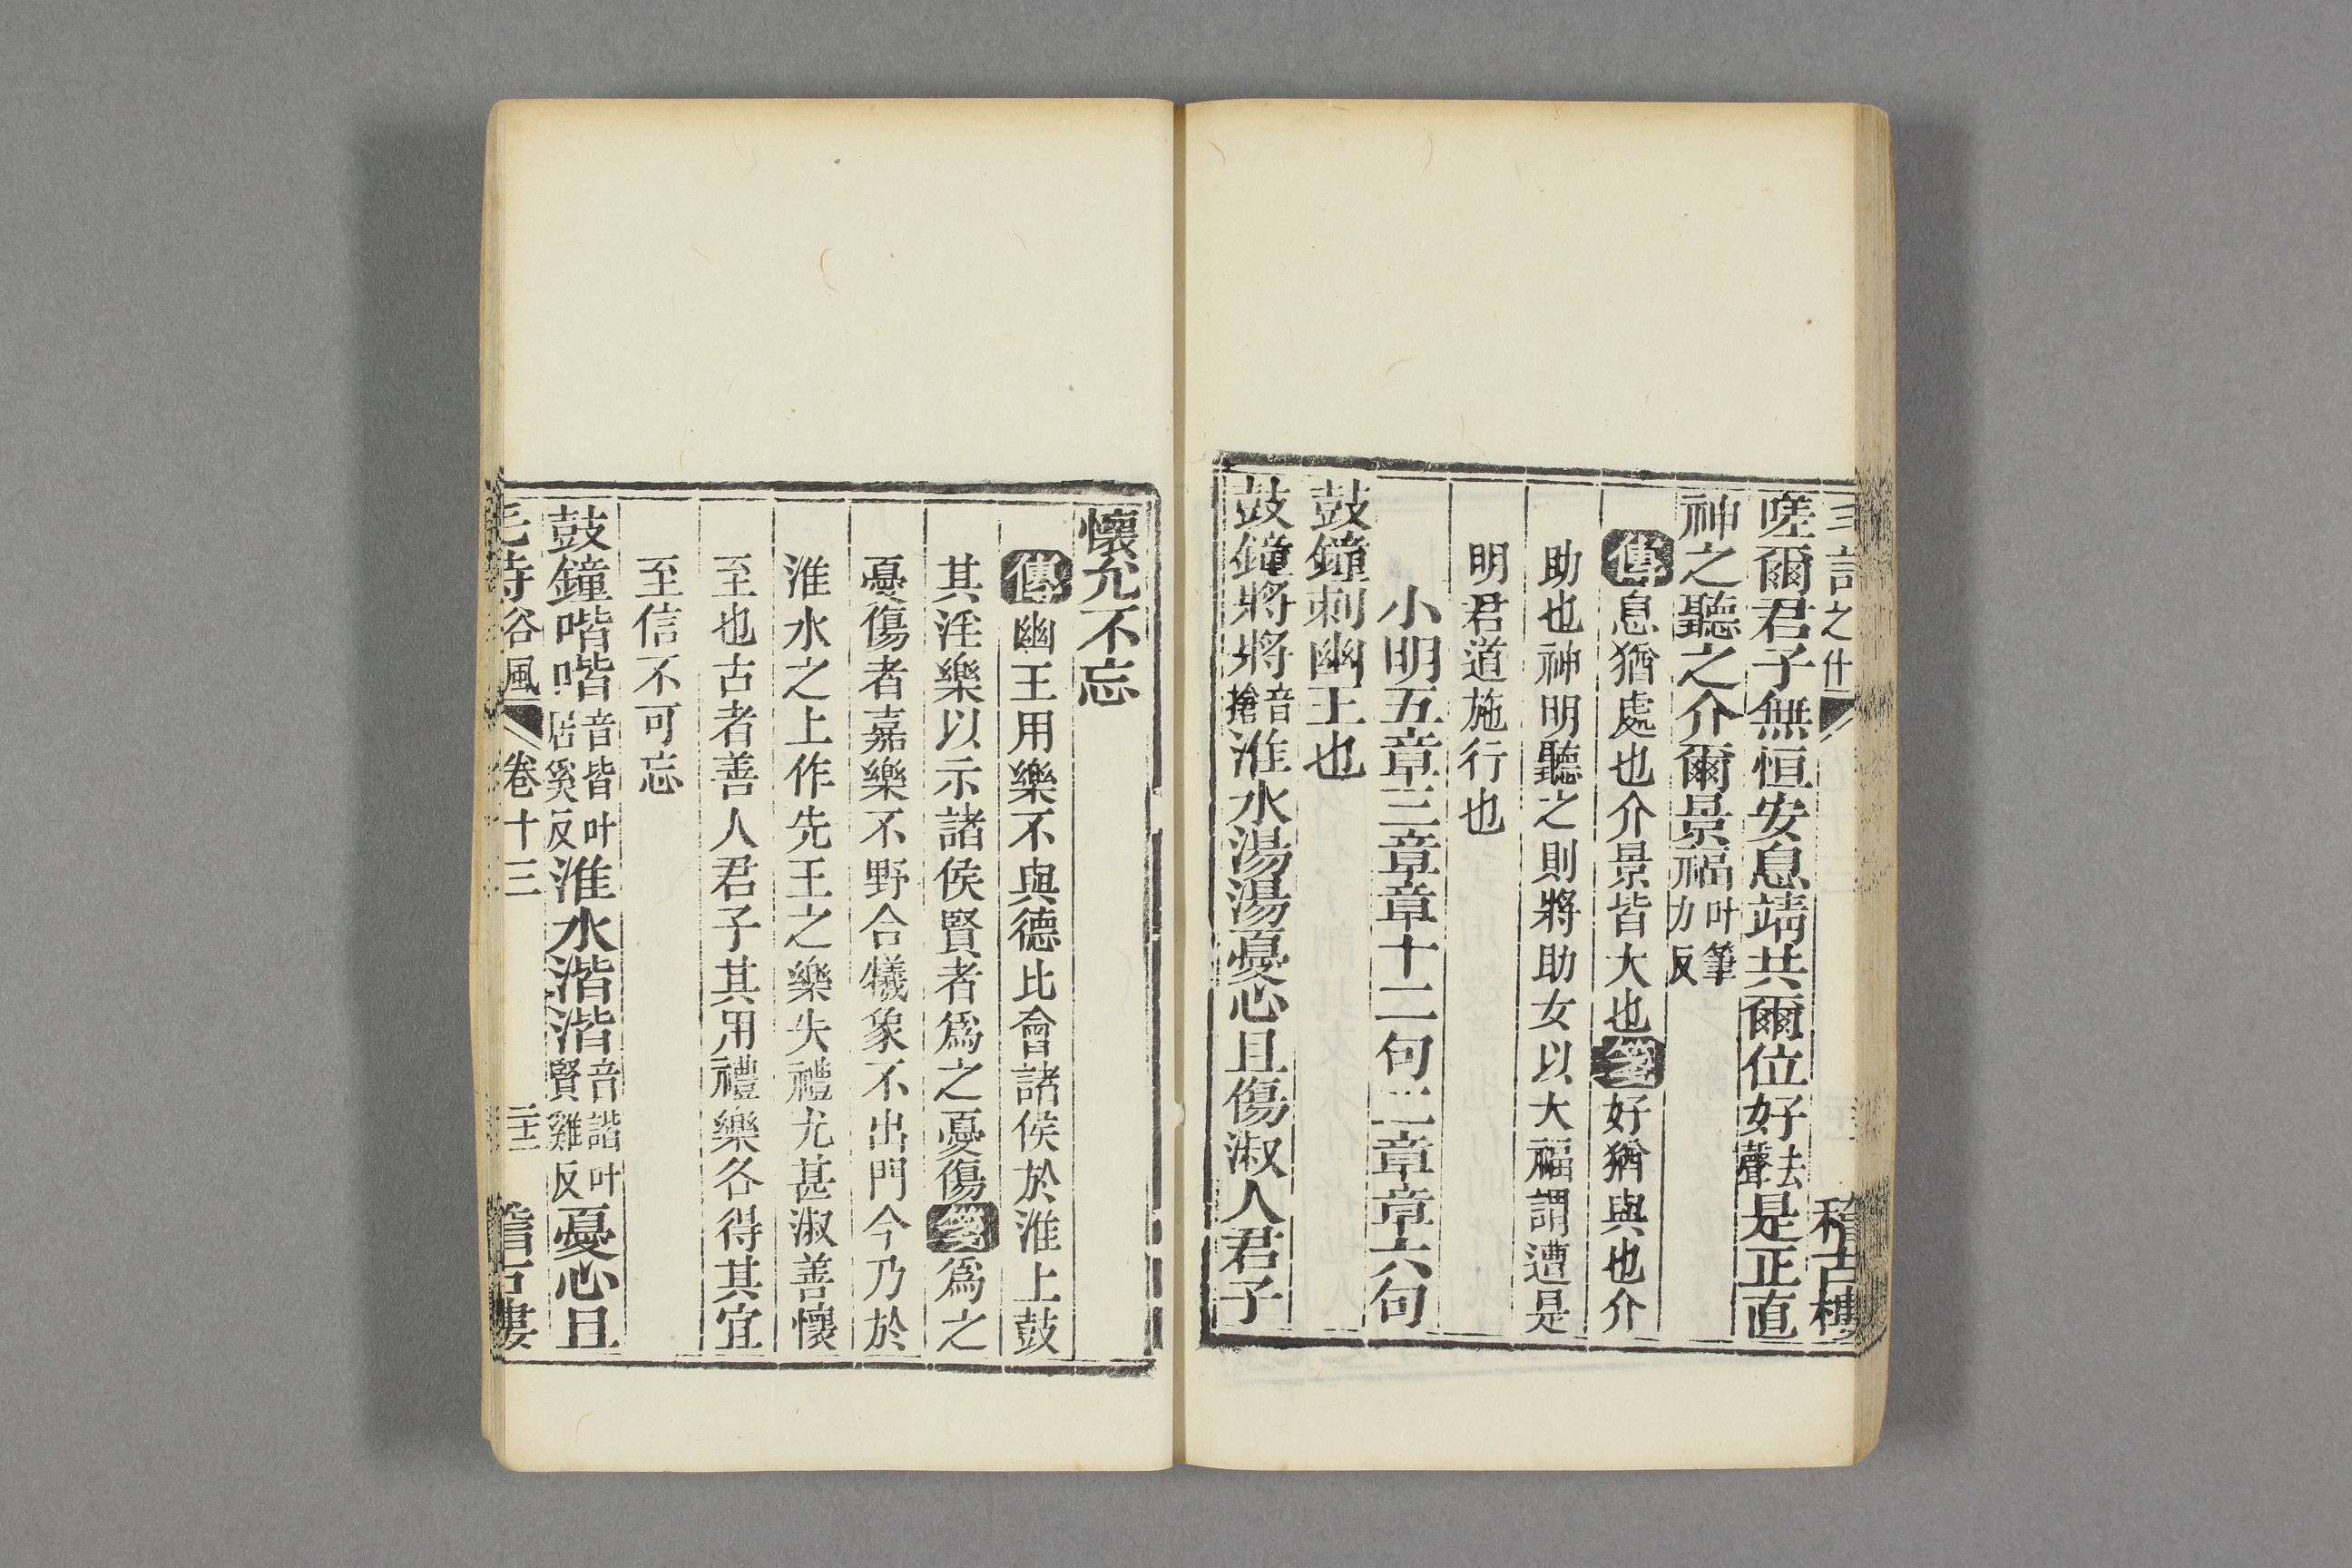 之什 稽古樓
嗟爾君子無恒安息靖共爾位好去聲是正直
神之聽之介爾景福叶筆力反
傳息猶處也介景皆大也箋好猶與也介
助也神明聽之則將助女以大福謂遭是
明君道施行也
小明五章三章章十二句二章章六句
鼓鐘刺幽王也
鼓鐘將將音搶淮水湯湯憂心且傷淑人君子
懷允不忘
傳幽王用樂不與德比會諸侯於淮上鼓
其淫樂以示諸侯賢者爲之憂傷箋爲之
憂傷者嘉樂不野合犧象不出門今乃於
淮水之上作先王之樂失禮尤甚淑善懷
至也古者善人君子其用禮樂各得其宜
至信不可忘
鼓鐘喈喈音皆叶居奚反淮水湝湝音諧叶賢雞反憂心且
毛詩谷風 卷十三 二十二 稽古樓